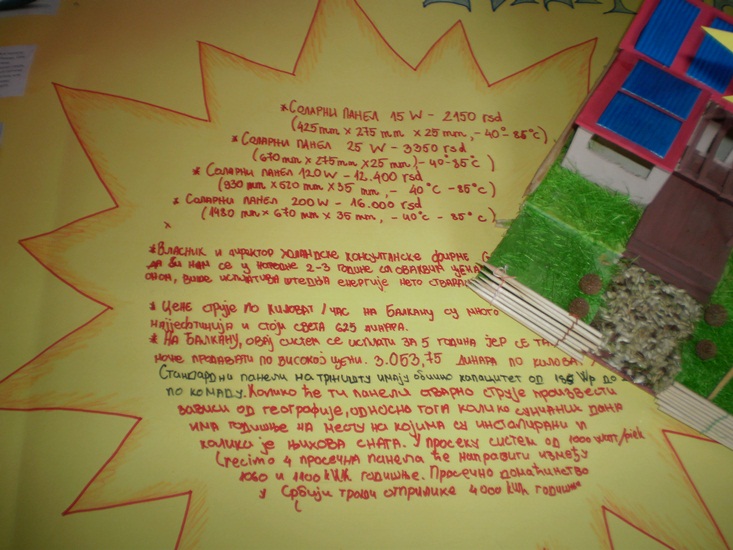 *СОЛАРНИ ПАНЕЛ 15 W - 2150 rsd
(425mm x 275 mm x 25 mm, - 40° - 85°c)
*СОЛАРНИ ПАНЕЛ 25 W - 3350 rsd
(670mm x 275mm x 25 mm, - 40° - 85°c)
* СОЛАРНИ ПАНЕЛ 120W - 12.400 rsd
(930 mm x 520 mm x 35 mm, - 40°c - 85°c)
* СОЛАРНИ ПАНЕЛ 200W - 16.000 rsd
(1480 mm x 670 mm x 35 mm, - 40°c - 85°c)
x
*ВЛАСНИК И ДИРЕКТОР ХОЛАНДСКЕ КОНСУЛТАНСКЕ ФИРМЕ
ДА БИ НАМ СЕ У НАРЕДНЕ 2-3 ГОДИНЕ СА ОВАКВИМ ЦЕНА
ОНОМ, ВИШЕ ИСПЛАТИВА ШТЕДЊА ЕНЕРГИЈЕ НЕГО СТВАРА
* ЦЕНЕ СТРУЈЕ ПО КИЛОВАТ / ЧАС НА БАЛКАНУ СУ МНОГО
НАЈЈЕФТИНИЈА И СТОЈИ СВЕГА 625 ДИНАРА.
* НА БАЛКАНУ, ОВАЈ СИСТЕМ СЕ ИСПЛАТИ ЗА 5 ГОДИНА ЈЕР СЕ ТА
МОЧЕ ПРОДАВАТИ ПО ВИСОКОЈ ЦЕНИ. 3.053,75 ДИНАРА ПО КИЛОВАТ
СТАНДАРДНИ ПАНЕЛИ НА ТРЖИШТУ ИМАЈУ ОБИЧНО КАПАЦИТЕТ ОД 135 Wp ДО
ПО КОМАДУ. КОЛИКО ЋЕ ТИ ПАНЕЛИ СТВАРНО СТРУЈЕ ПРОИЗВЕСТИ
ЗАВИСИ ОД ГЕОГРАФИЈЕ, ОДНОСНО ТОГА КОЛИКО СУНЧАНИХ ДАНА
ИМА ГОДИШЊЕ НА МЕСТУ НА КОЈИМА СУ ИНСТАЛИРАНИ И
КОЛИКА ЈЕ ЊИХОВА СНАГА. У ПРОСЕКУ СИСТЕМ ОД 1000 WATT/PIEK
(recimo 4 ПРОСЕЧНА ПАНЕЛА ЋЕ НАПРАВИТИ ИЗМЕЂУ
1060 И 1100 kWh ГОДИШЊЕ. ПРОСЕЧНО ДОМАЋИНСТВО
У СРБИЈИ ТРОШИ ОТПРИЛИКЕ 4000 kWh ГОДИШЊЕ
(